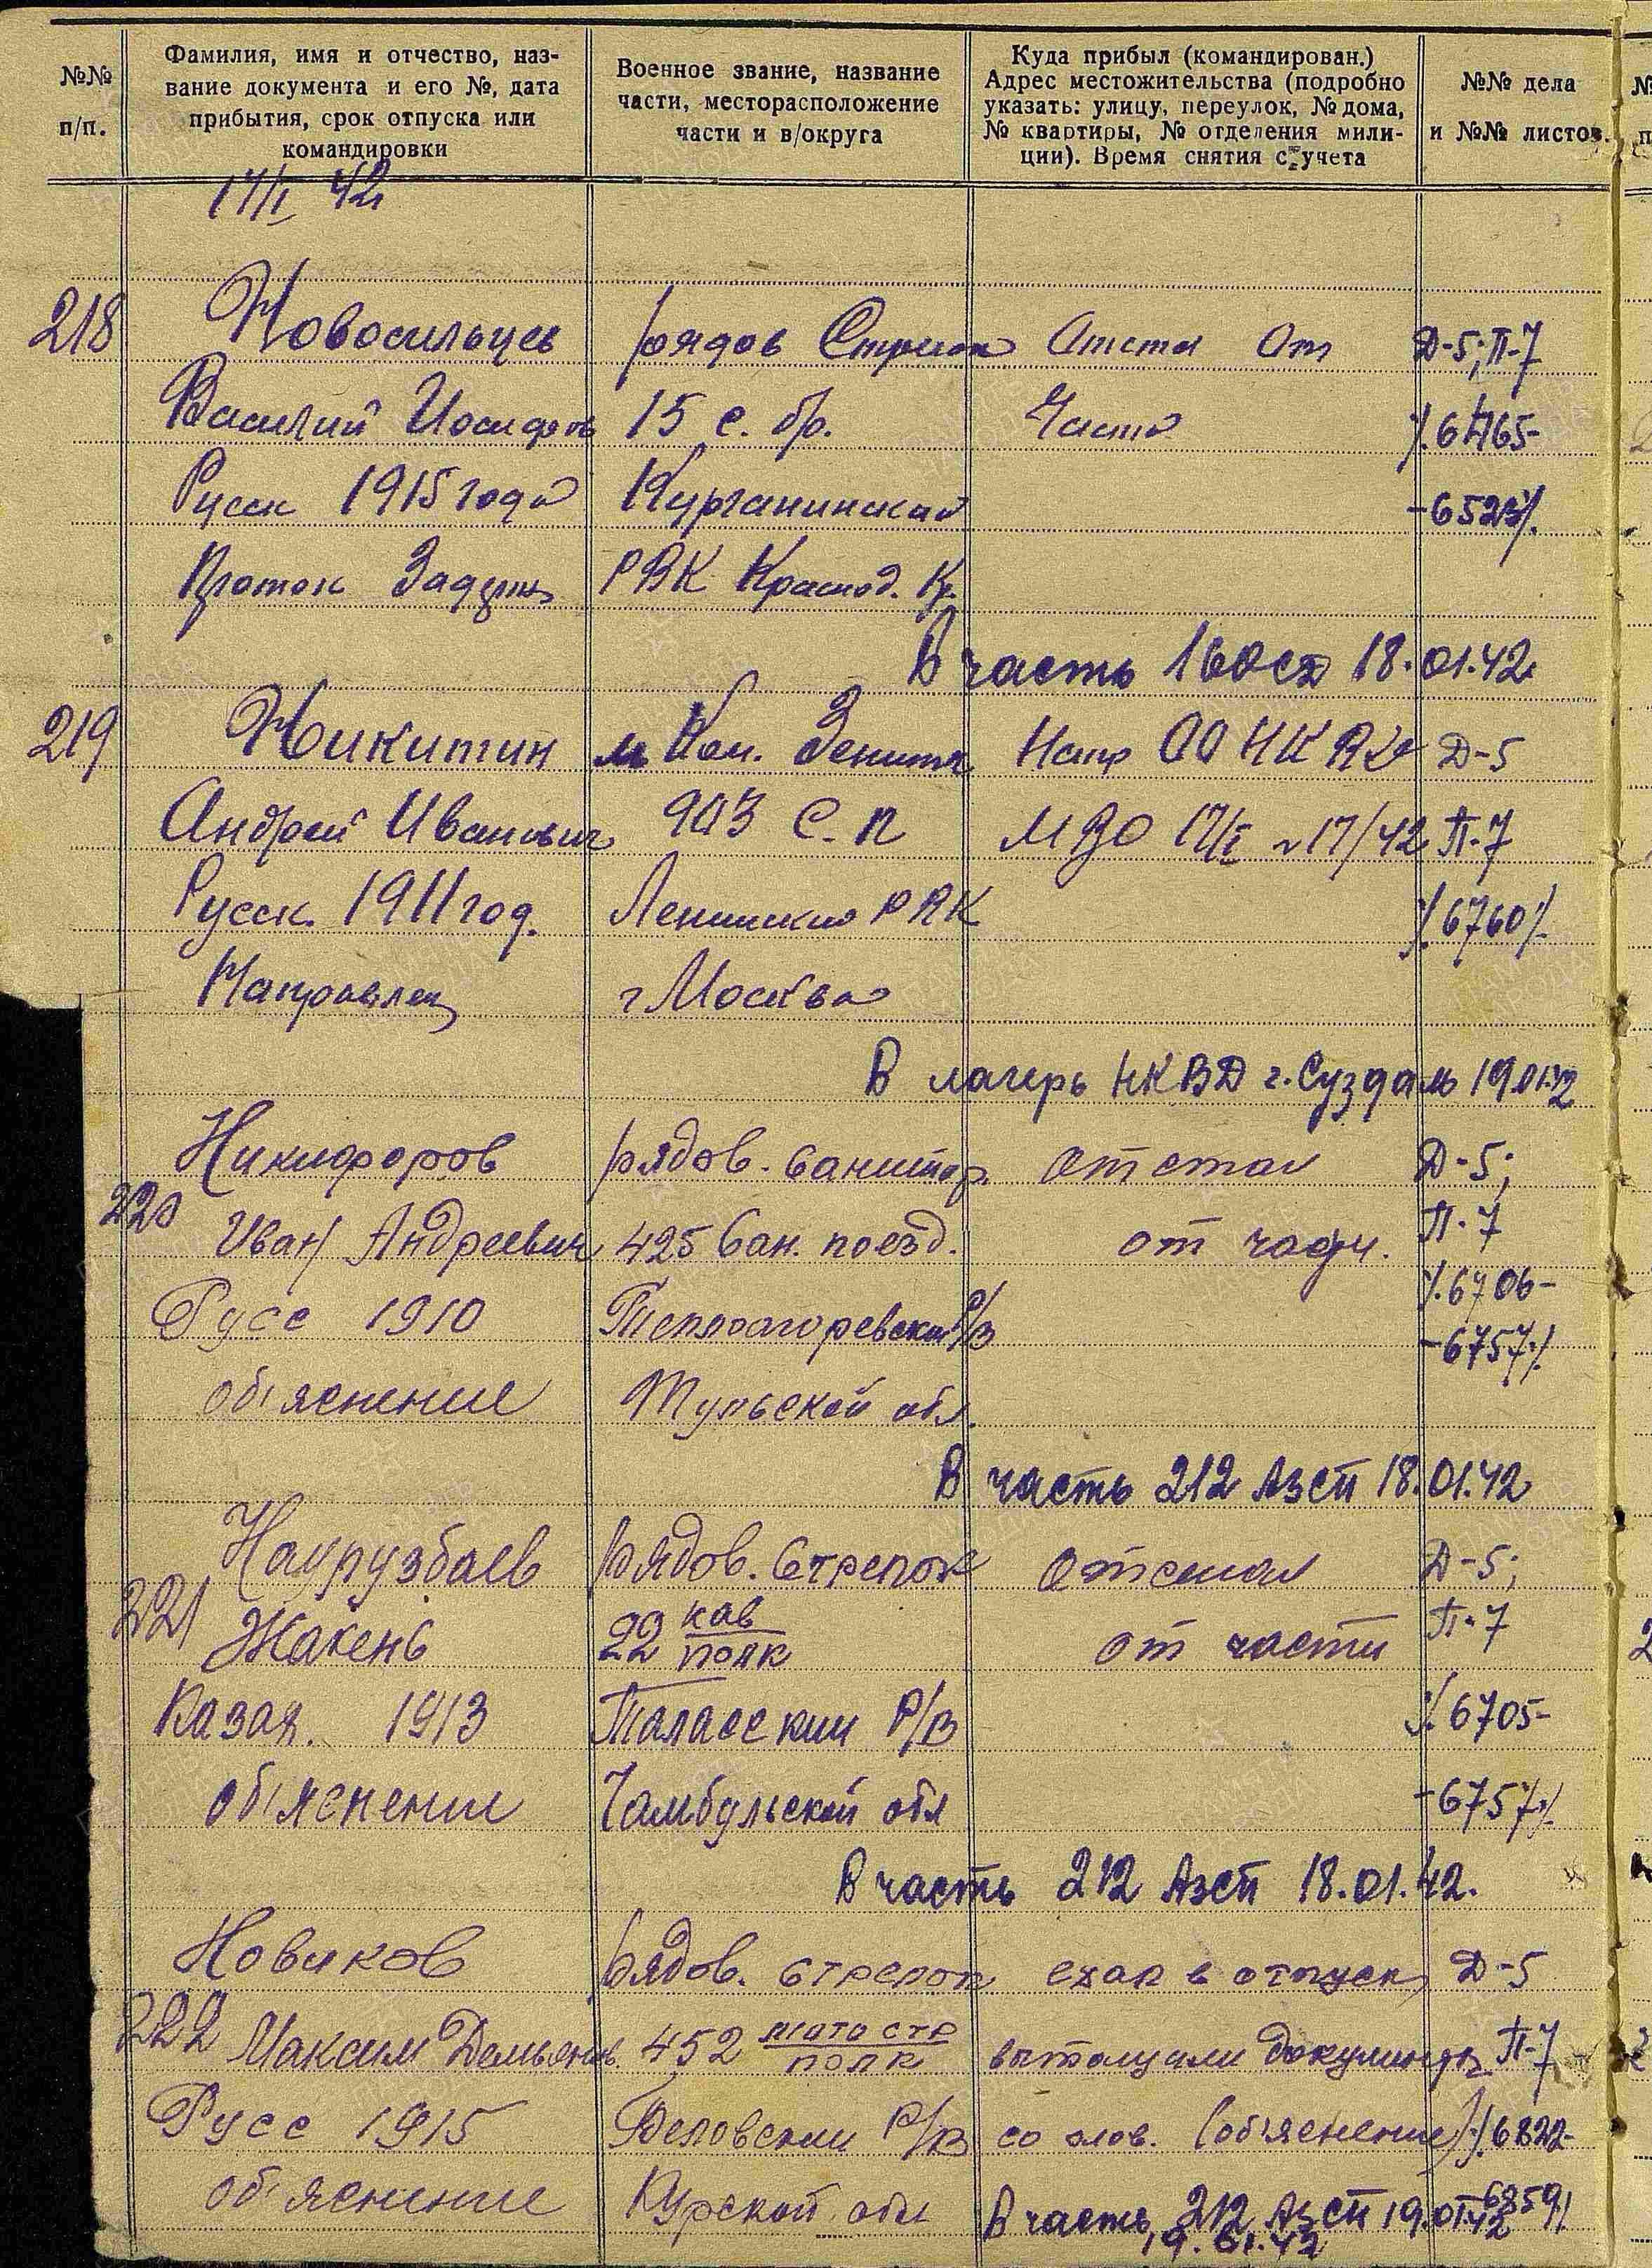 №№ п/п.
Фамилия, имя и отчество, наз-
вание документа и его №, дата
прибытия, срок отпуска или
командировки
Военное звание, название
части, месторасположение
части и в/округа
Куда прибыл (командирован.)
Адрес местожительства (подробно
указать: улицу, переулок, № дома,
№ квартиры, № отделения мили-
ции). Время снятия с учета
№№ дела
и №№ листов.
17/I 42
218 Новосильцев рядов Стрелок Отстал От Д-5; П-7
Василий Иосифов 15 с. бр. Части
Русск 1915 года Курганинский
Проток Задерж РВК Краснод. Кр.
В часть 18.01.42
219 Никитин Ком. Напр ОО НКВД Д-5
Андрей Иванович 903 С. п МВО 17/I №17/42 П-7
Русск. 1911 год. Ленинский РВК ./.6760./.
Направлен г Москва
В лагерь НКВД г. Суздаль 19.01.42
Никифоров рядов. санитар. отстал Д-5;
220 Иван Андреевич 425 сан. поезд. от части. П-7
Русс 1910 Р/В ./.6706-
-6757./.
об'яснение Тульской обл.
В часть 212 Азсп 18.01.42
Наурузбаев рядов. стрелок отстал Д-5;
221 Жакень 22 кав полк от части П-7
Казах. 1913 Таласский Р/В ./.6705-
об'яснение Чамбульской обл -6757./.
В часть 212 Азсп 18.01.42.
Новиков рядов. стрелок ехал в отпуск, Д-5
222 Максим Демьянов. 452 мото стр полк вытащили документы П-7
Русс 1915 Беловский Р/В со слов. (об'яснение) ./.6822-
об'яснение Курской обл В часть 212 Азсп 19.01.42 -6859./.
19.01.42